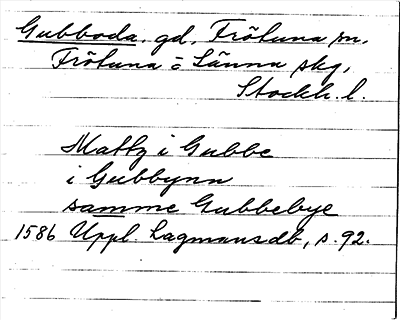 Gubboda, gd, Frötuna sn,
Frötuna o Länna skg,
Stockh. l.
Mattz i Gubbe
i Gubbynn
samme Gubbebye
1586 Uppl. Lagmansdb, s. 92.